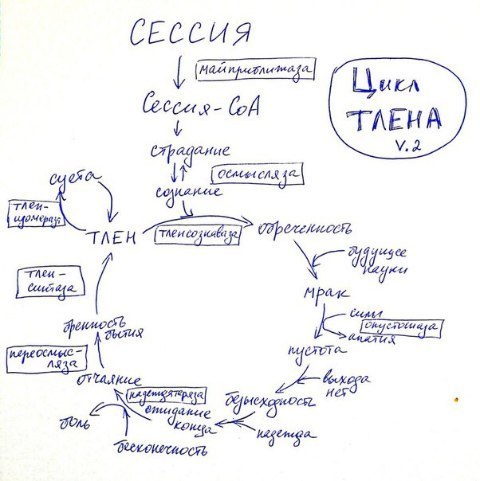 СЕССИЯ
майприближаза
Сессия-СоА
Цикл
ТЛЕНА
v.2
страдание
осмысляза
сознание
суета
тлен-
изомераза
ТЛЕН
тленсознаваза
обреченность
будущее
науки
мрак
тлен-
синтаза
силы
опустошаза
апатия
бренность
бытия
пустота
переосмыс-
ляза
отчаяние
выхода
нет
надеждатераза
безысходность
ожидание
конца
боль
надежда
бесконечность